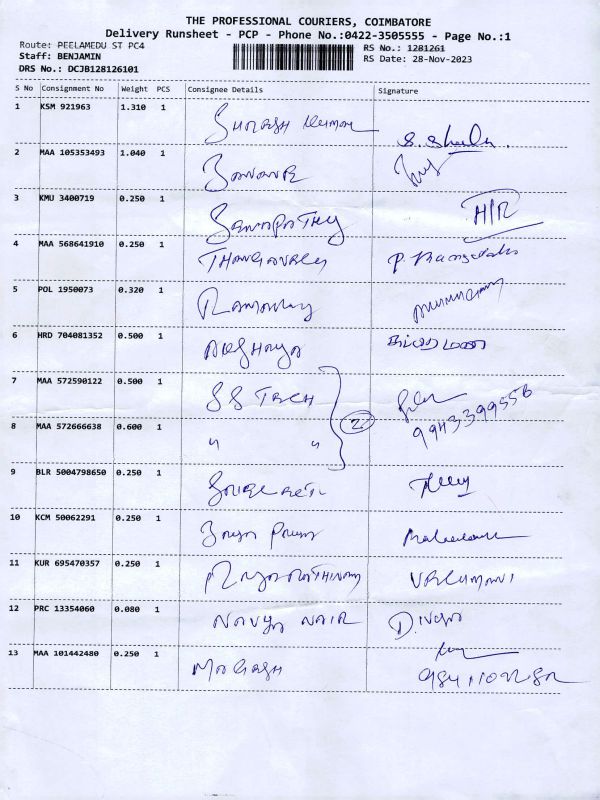 THE PROFESSIONAL COURIERS, COIMBATORE
Delivery Runsheet - PCP - Phone No.:0422-3505555 - Page No.:1
Route: PEELAMEDU ST PC4 RS No.: 1281261
Staff: BENJAMIN RS Date: 28-Nov-2023
DRS No.: DCJB128126101
S No Consignment No Weight PCS Consignee Details Signature
1 KSM 921963 1.310 1 Suresh Kumar
2 MAA 105353493 1.040 1
3 KMU 3400719 0.250 1 Senapathy
4 MAA 568641910 0.250 1 Thangavely
5 POL 1950073 0.320 1 Ramasamy
6 HRD 704081352 0.500 1
7 MAA 572590122 0.500 1 SS Tech 9943399556
8 MAA 572666638 0.600 1 " " 2
9 BLR 5004798650 0.250 1
10 KCM 50062291 0.250 1
11 KUR 695470357 0.250 1 VREEMANI
12 PRC 13354060 0.080 1 NAVYA NAIR Divya
13 MAA 101442480 0.250 1